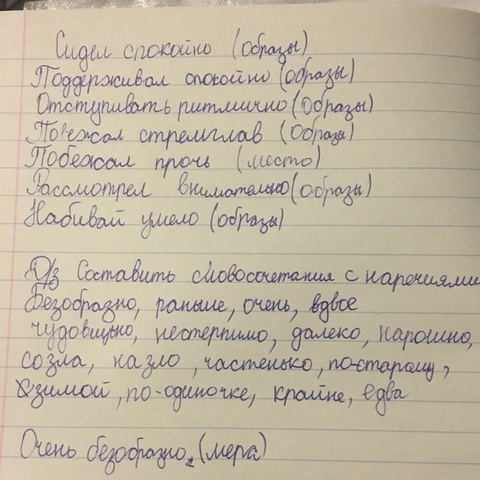 Сидел спокойно (образы)
Поддерживал спокойно (образы)
Отступивать ритмично (образы)
Побежал стремглав (образы)
Побежал прочь (место)
Рассмотрел внимательно (образы)
Набивай умело (образы)
Д/з Составить словосочетания с наречиями
Безобразно, раньше, очень, вдвое
чудовищно, нестерпимо, далеко, нарошно,
созла, назло, частенько, по-старому,
зимой, по-одиночке, крайне, едва
Очень безобразно, (мера)